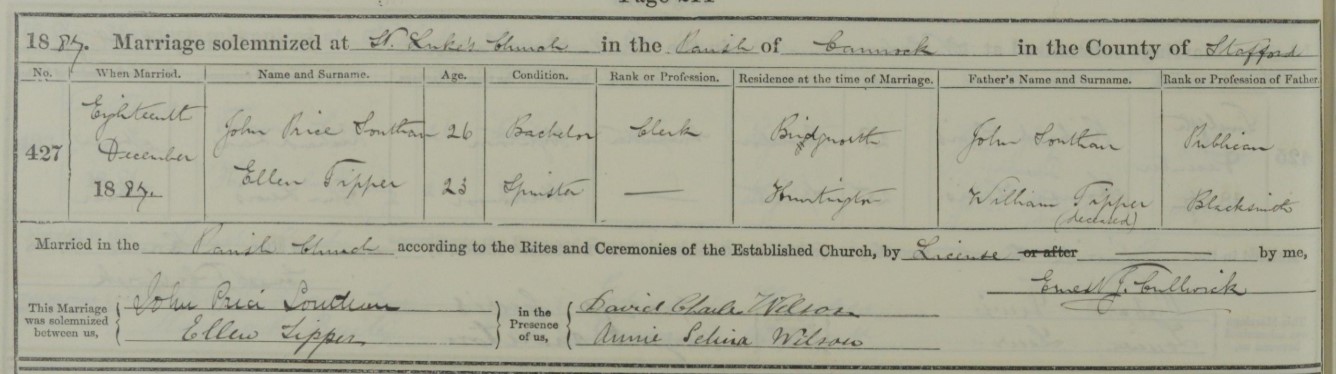 1887. Marriage solemnized at St. Luke's Church in the Parish of Cannock in the County of Stafford
No. When Married. Name and Surname. Age. Condition. Rank or Profession. Residence at the time of Marriage. Father's Name and Surname. Rank or Profession of Father.
427 Eighteenth December 1887. John Price Southan 26 Bachelor Clerk Bridgnorth John Southan Publican
Ellen Tipper 23 Spinster — Huntington William Tipper (deceased) Blacksmith
Married in the Parish Church according to the Rites and Ceremonies of the Established Church, by License or after — by me,
Ernest J. Cullwick
This Marriage was solemnized between us, John Price Southan in the Presence of us, David Charles Wilson
Ellen Tipper Annie Selina Wilson